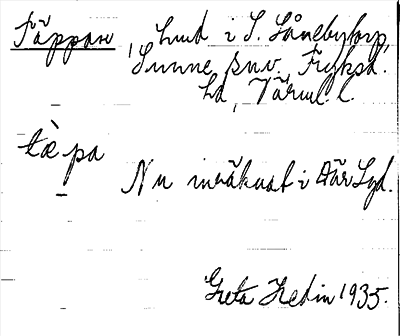 Täppan, hmd i S. Lånebytorp,
Sunne snv. Fryksd.
hd, Värml. l.
tæ̀pa
Nu inräknat i Där Syd.
Greta Hedin 1935.